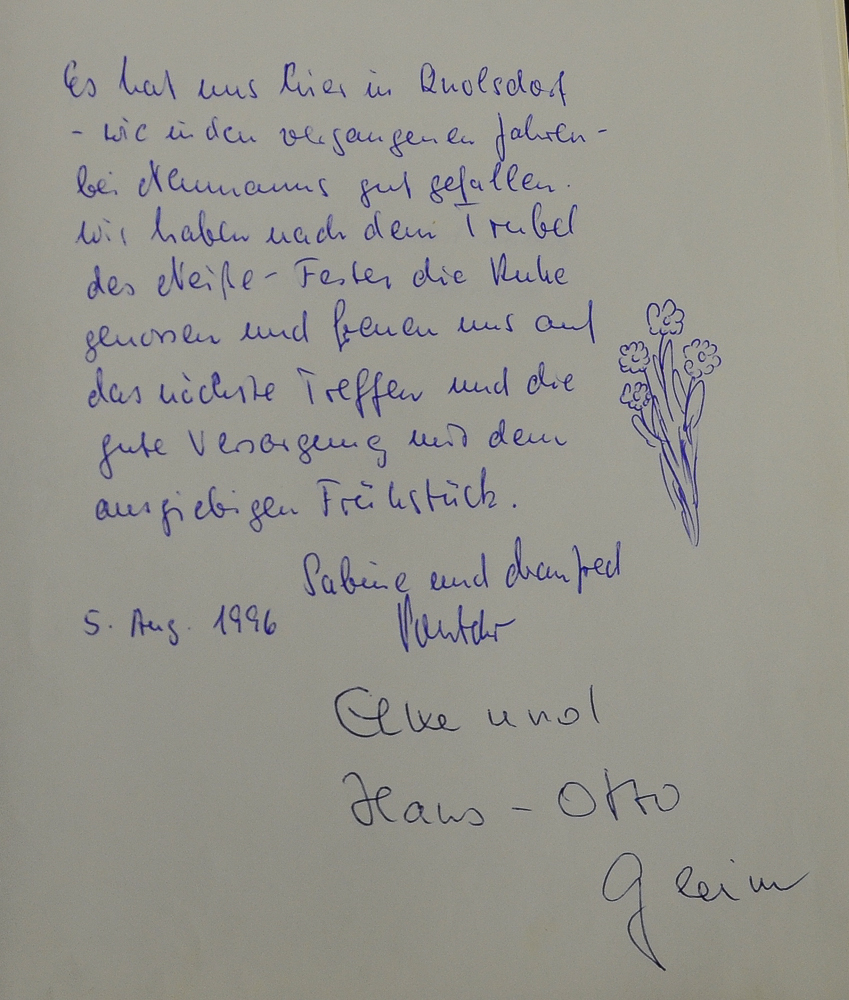 Es hat uns hier in Quolsdorf
- wie in den vergangenen Jahren -
bei Neumanns gut gefallen.
Wir haben nach dem Trubel
des Neiße-Festes die Ruhe
genossen und freuen uns auf
das nächste Treffen und die
gute Versorgung mit dem
ausgiebigen Frühstück.
Sabine und Manfred
5. Aug. 1996
Elke und
Hans - Otto
Gleim